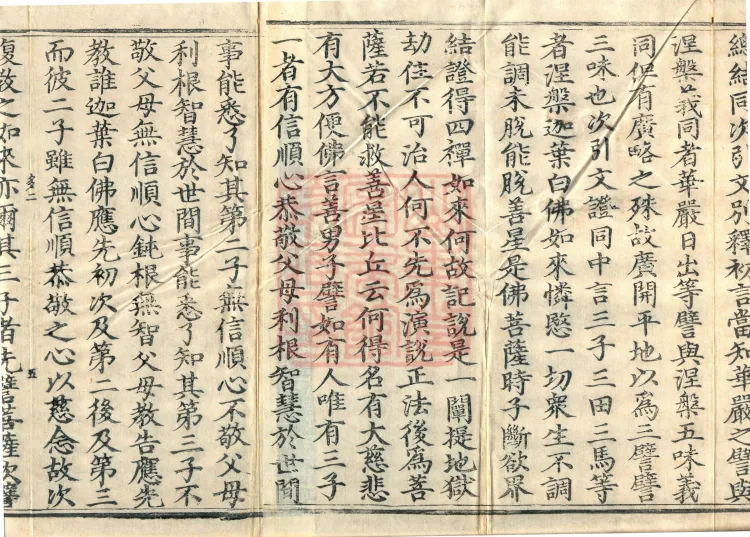 總結同次引文別釋初言當知華嚴之譬與
涅槃義同者華嚴日出等譬與涅槃五味義
同但有廣略之殊故廣開平地以為三譬譬
三味也次引文證同中言三子三田三馬等
者涅槃迦葉白佛如來憐愍一切眾生不調
能調未脫能脫善星是佛菩薩時子斷欲界
結證得四禪如來何故記說是一闡提地獄
劫住不可治人何不先為演說正法後為菩
薩若不能救善星比丘云何得名有大慈悲
有大方便佛言善男子譬如有人唯有三子
一者有信順心恭敬父母利根智慧於世間
事能悉了知其第二子無信順心不敬父母
利根智慧於世間事能悉了知其第三子不
敬父母無信順心鈍根無智父母教告應先
教誰迦葉白佛應先初次及第二後及第三
而彼二子雖無信順恭敬之心以慈念故次
復教之如來亦爾其三子者先譬菩薩次譬
五